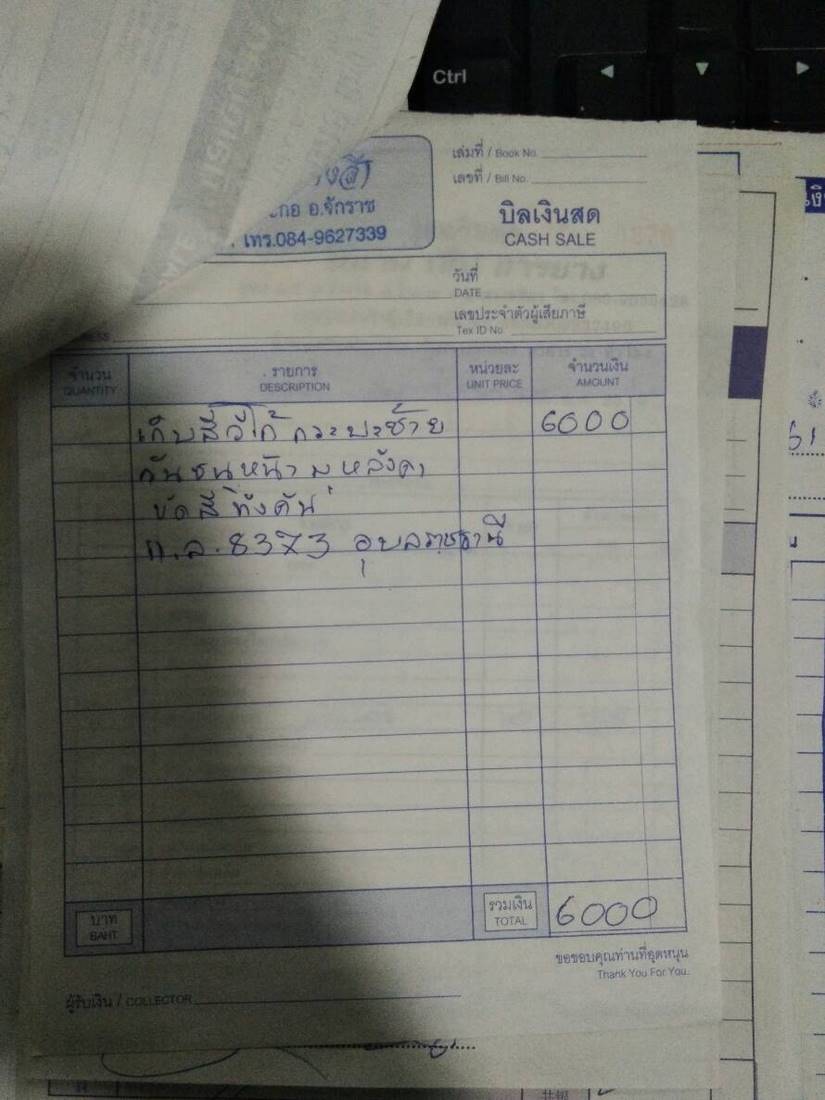 Ctrl
เล่มที่ / Book No.
เลขที่ / Bill No.
อ.จักราช
โทร.084-9627339
บิลเงินสด
CASH SALE
วันที่
DATE
เลขประจำตัวผู้เสียภาษี
Tex ID No.
จำนวน
QUANTITY
รายการ
DESCRIPTION
หน่วยละ
UNIT PRICE
จำนวนเงิน
AMOUNT
เก็บสีวีโก้ กระบะซ้าย 6000
กันชนหน้า หลังคา
ขัดสีทั้งคัน
8373 อุบลราชธานี
บาท
BAHT
รวมเงิน
TOTAL
6000
ขอขอบคุณท่านที่อุดหนุน
Thank You For You.
ผู้รับเงิน / COLLECTOR